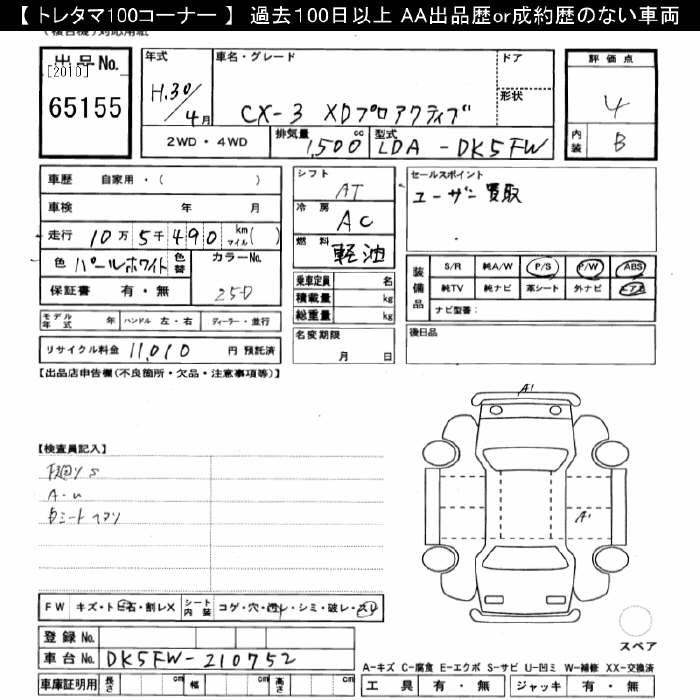 【 トレタマ100コーナー 】 過去100日以上 AA出品歴or成約歴のない車両
出品No.
[2010]
65155
年式
H.30/4月
車名・グレード
CX-3 XDプロアクティブ
ドア
形状
評価点
4
内装
B
2WD・4WD
排気量
1,500 cc
型式
LDA-DK5FW
車歴 自家用・( )
車検 年 月
走行 10万5千490 km マイル( )
色 パールホワイト 色替
カラーNo.
25D
保証書 有・無
シフト
AT
冷房
AC
燃料
軽油
セールスポイント
ユーザー買取
乗車定員 名
積載量 kg
総重量 kg
装備品
S/R 純A/W P/S P/W ABS
純TV 純ナビ 革シート 外ナビ エアB
ナビ型番:
モデル年式 年 ハンドル 左・右 ディーラー・並行
リサイクル料金 11,010 円 預託済
名変期限
月 日
後日品
【出品店申告欄(不良箇所・欠品・注意事項等)】
A1
【検査員記入】
A-u
A1
FW キズ・ト石・割レX シート内装 コゲ・穴・透レ・シミ・破レ・スレ
登録No.
車台No. DK5FW-210752
車庫証明用 長さ cm 幅 cm 高さ cm
スペア
A-キズ C-腐食 E-エクボ S-サビ U-凹ミ W-補修 XX-交換済
工具 有・無 ジャッキ 有・無